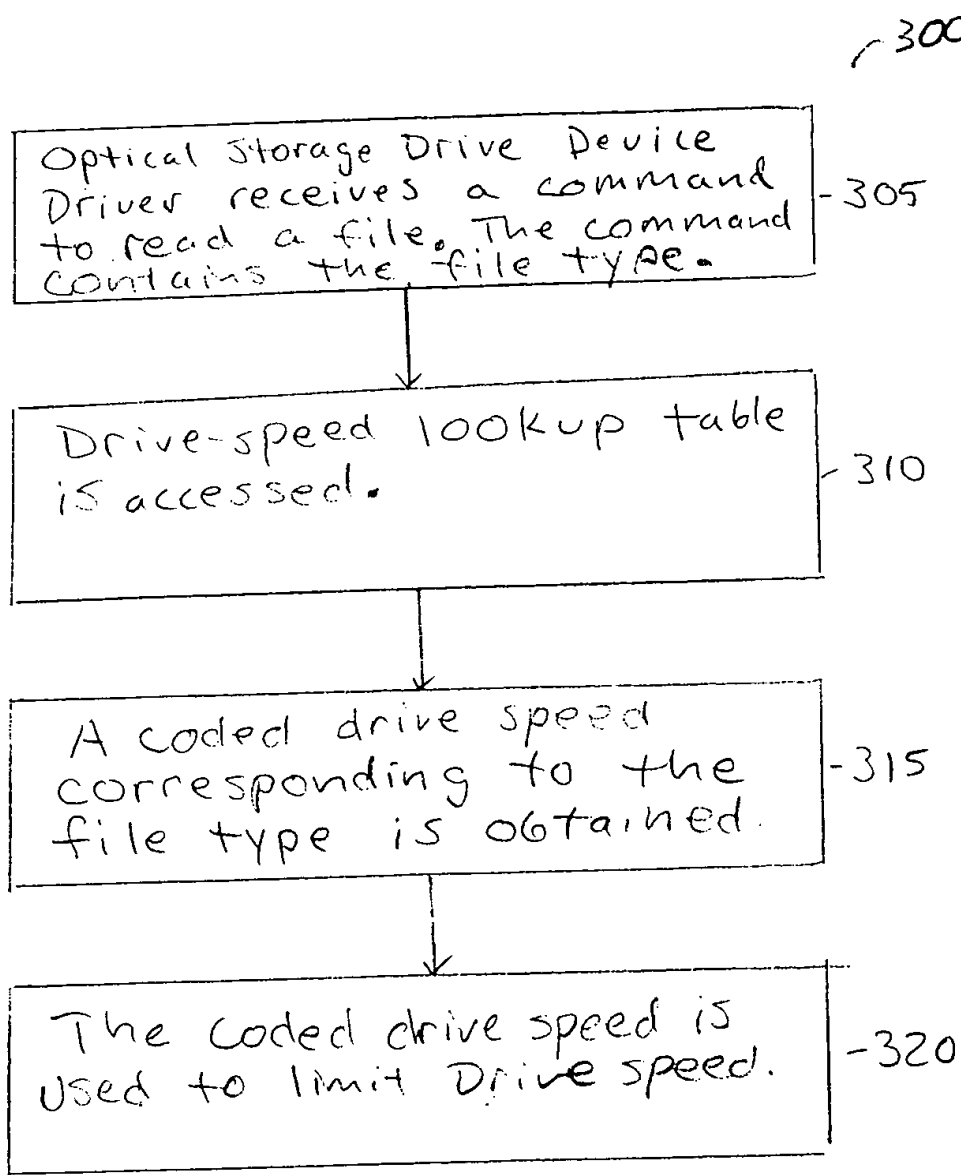 300
Optical Storage Drive Device
Driver receives a command
to read a file. The command
contains the file type.
305
Drive-speed lookup table
is accessed.
310
A coded drive speed
corresponding to the
file type is obtained.
315
The coded drive speed is
used to limit Drive speed.
320